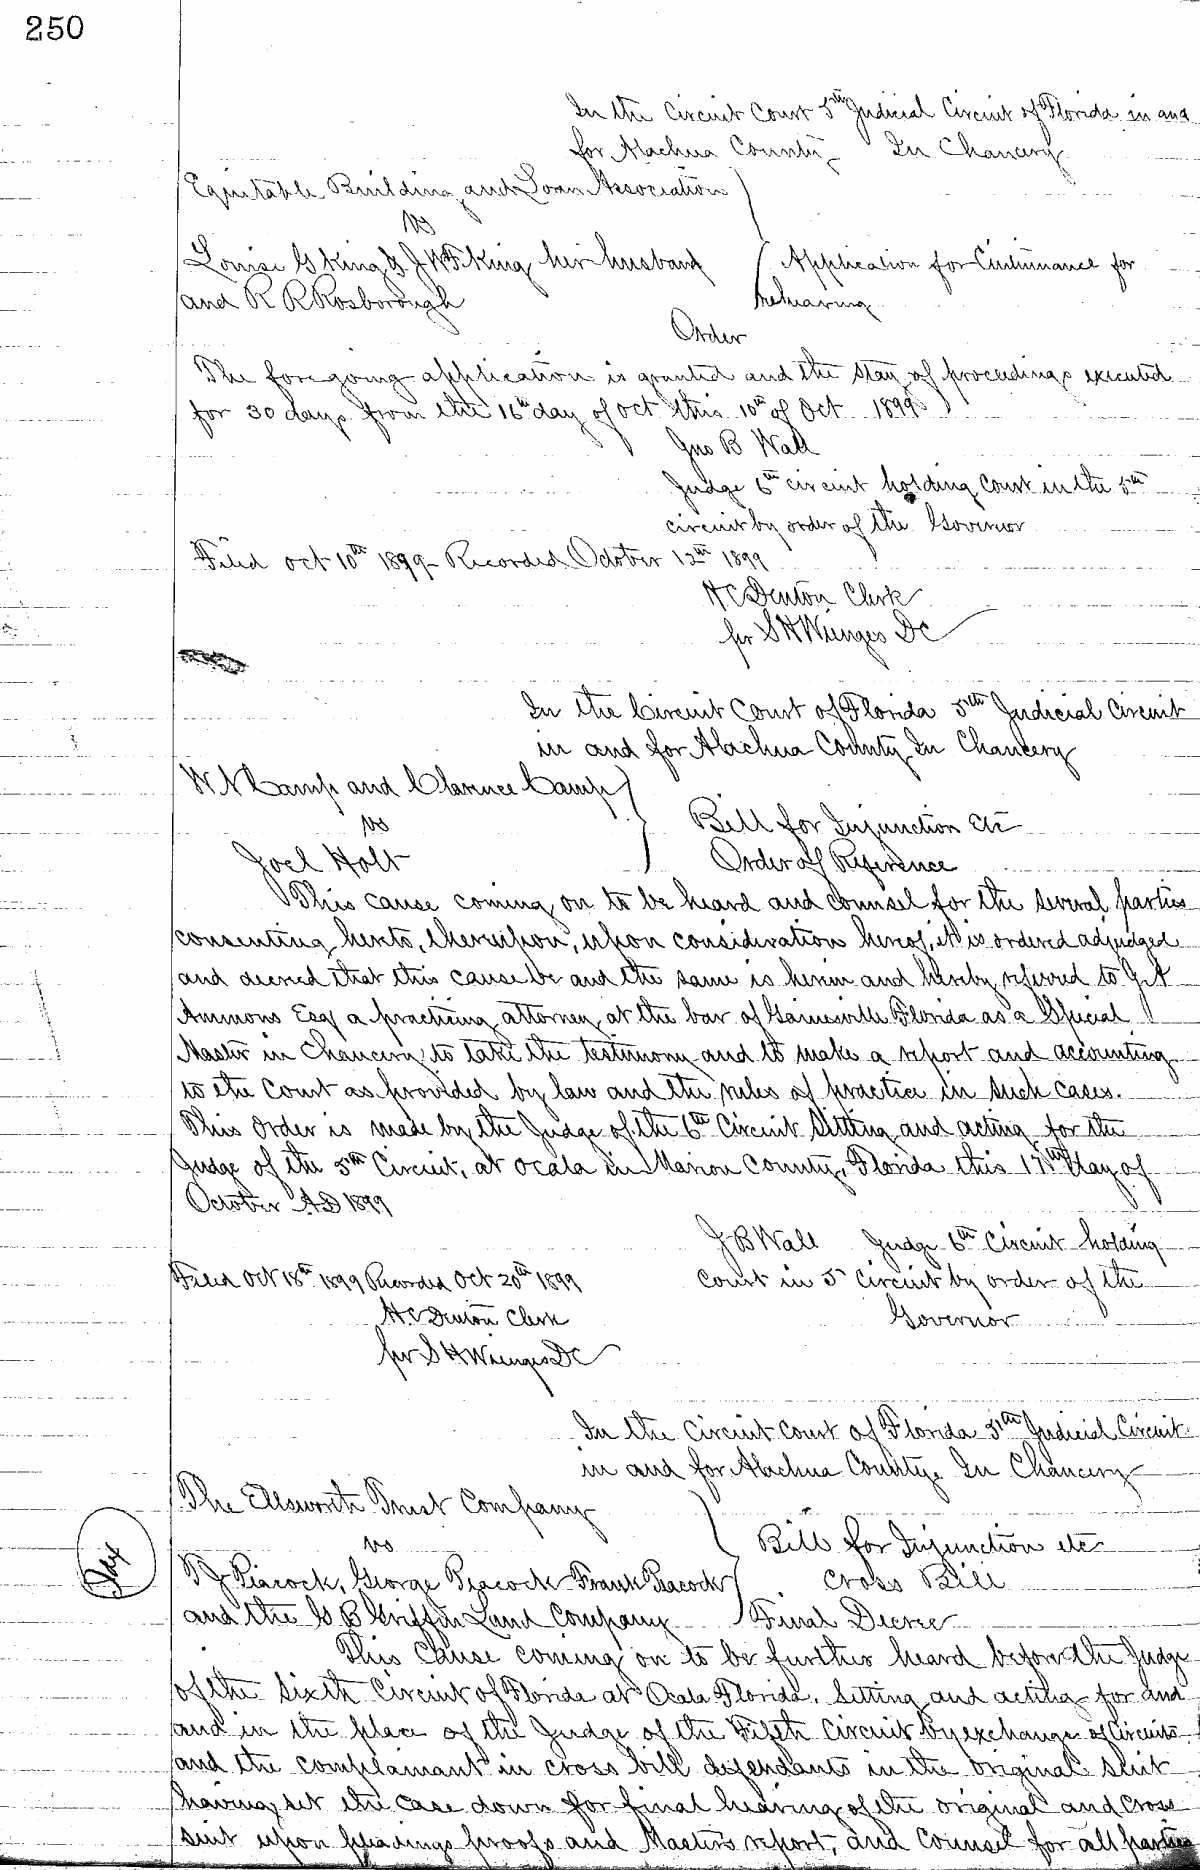 250
In the Circuit Court 5th Judicial Circuit of Florida in and
for Alachua County In Chancery
Equitable Building and Loan Association
vs
Louise G King & J W F King her husband
and R R Rosborough
Application for Continuance for
rehearing
Order
The foregoing application is granted and the stay of proceedings executed
for 30 days from the 16th day of Oct this 10th of Oct 1899
Jno B Wall
Judge 6th circuit holding Court in the 5th
circuit by order of the Governor
Filed Oct 10th 1899 Recorded October 12th 1899
H C Denton Clerk
per S H Wienges DC
In the Circuit Court of Florida 5th Judicial Circuit
in and for Alachua County In Chancery
W N Camp and Clarence Camp
vs
Joel Holt
Bill for Injunction etc
Order of Reference
This cause coming on to be heard and counsel for the several parties
consenting hereto, thereupon, upon consideration hereof, it is ordered adjudged
and decreed that this cause be and the same is herein and hereby referred to
Ammons Esq a practicing attorney at the bar of Gainesville Florida as a Special
Master in Chancery to take the testimony and to make a report and accounting
to the Court as provided by law and the rules of practice in such cases.
This Order is made by the Judge of the 6th Circuit Sitting and acting for the
Judge of the 5th Circuit, at Ocala in Marion County, Florida this 17th day of
October AD 1899
J B Wall Judge 6th Circuit holding
Court in 5th Circuit by order of the
Governor
Filed Oct 18th 1899 Recorded Oct 20th 1899
H.C Denton Clerk
per S H Wienges DC
In the Circuit Court of Florida 5th Judicial Circuit
in and for Alachua County. In Chancery
The Ellsworth Trust Company
vs
T J Peacock, George Peacock Frank Peacock
and the G B Griffin Land Company
Bill for Injunction etc
Cross Bill
Final Decree
This Cause coming on to be further heard before the Judge
of the Sixth Circuit of Florida at Ocala Florida, Sitting and acting for and
and in the place of the Judge of the Fifth Circuit by exchange of Circuits
and the complainant in cross bill defendants in the original suit
having set the case down for final hearing of the original and Cross
suit upon pleadings proofs and Masters report, and Counsel for all parties